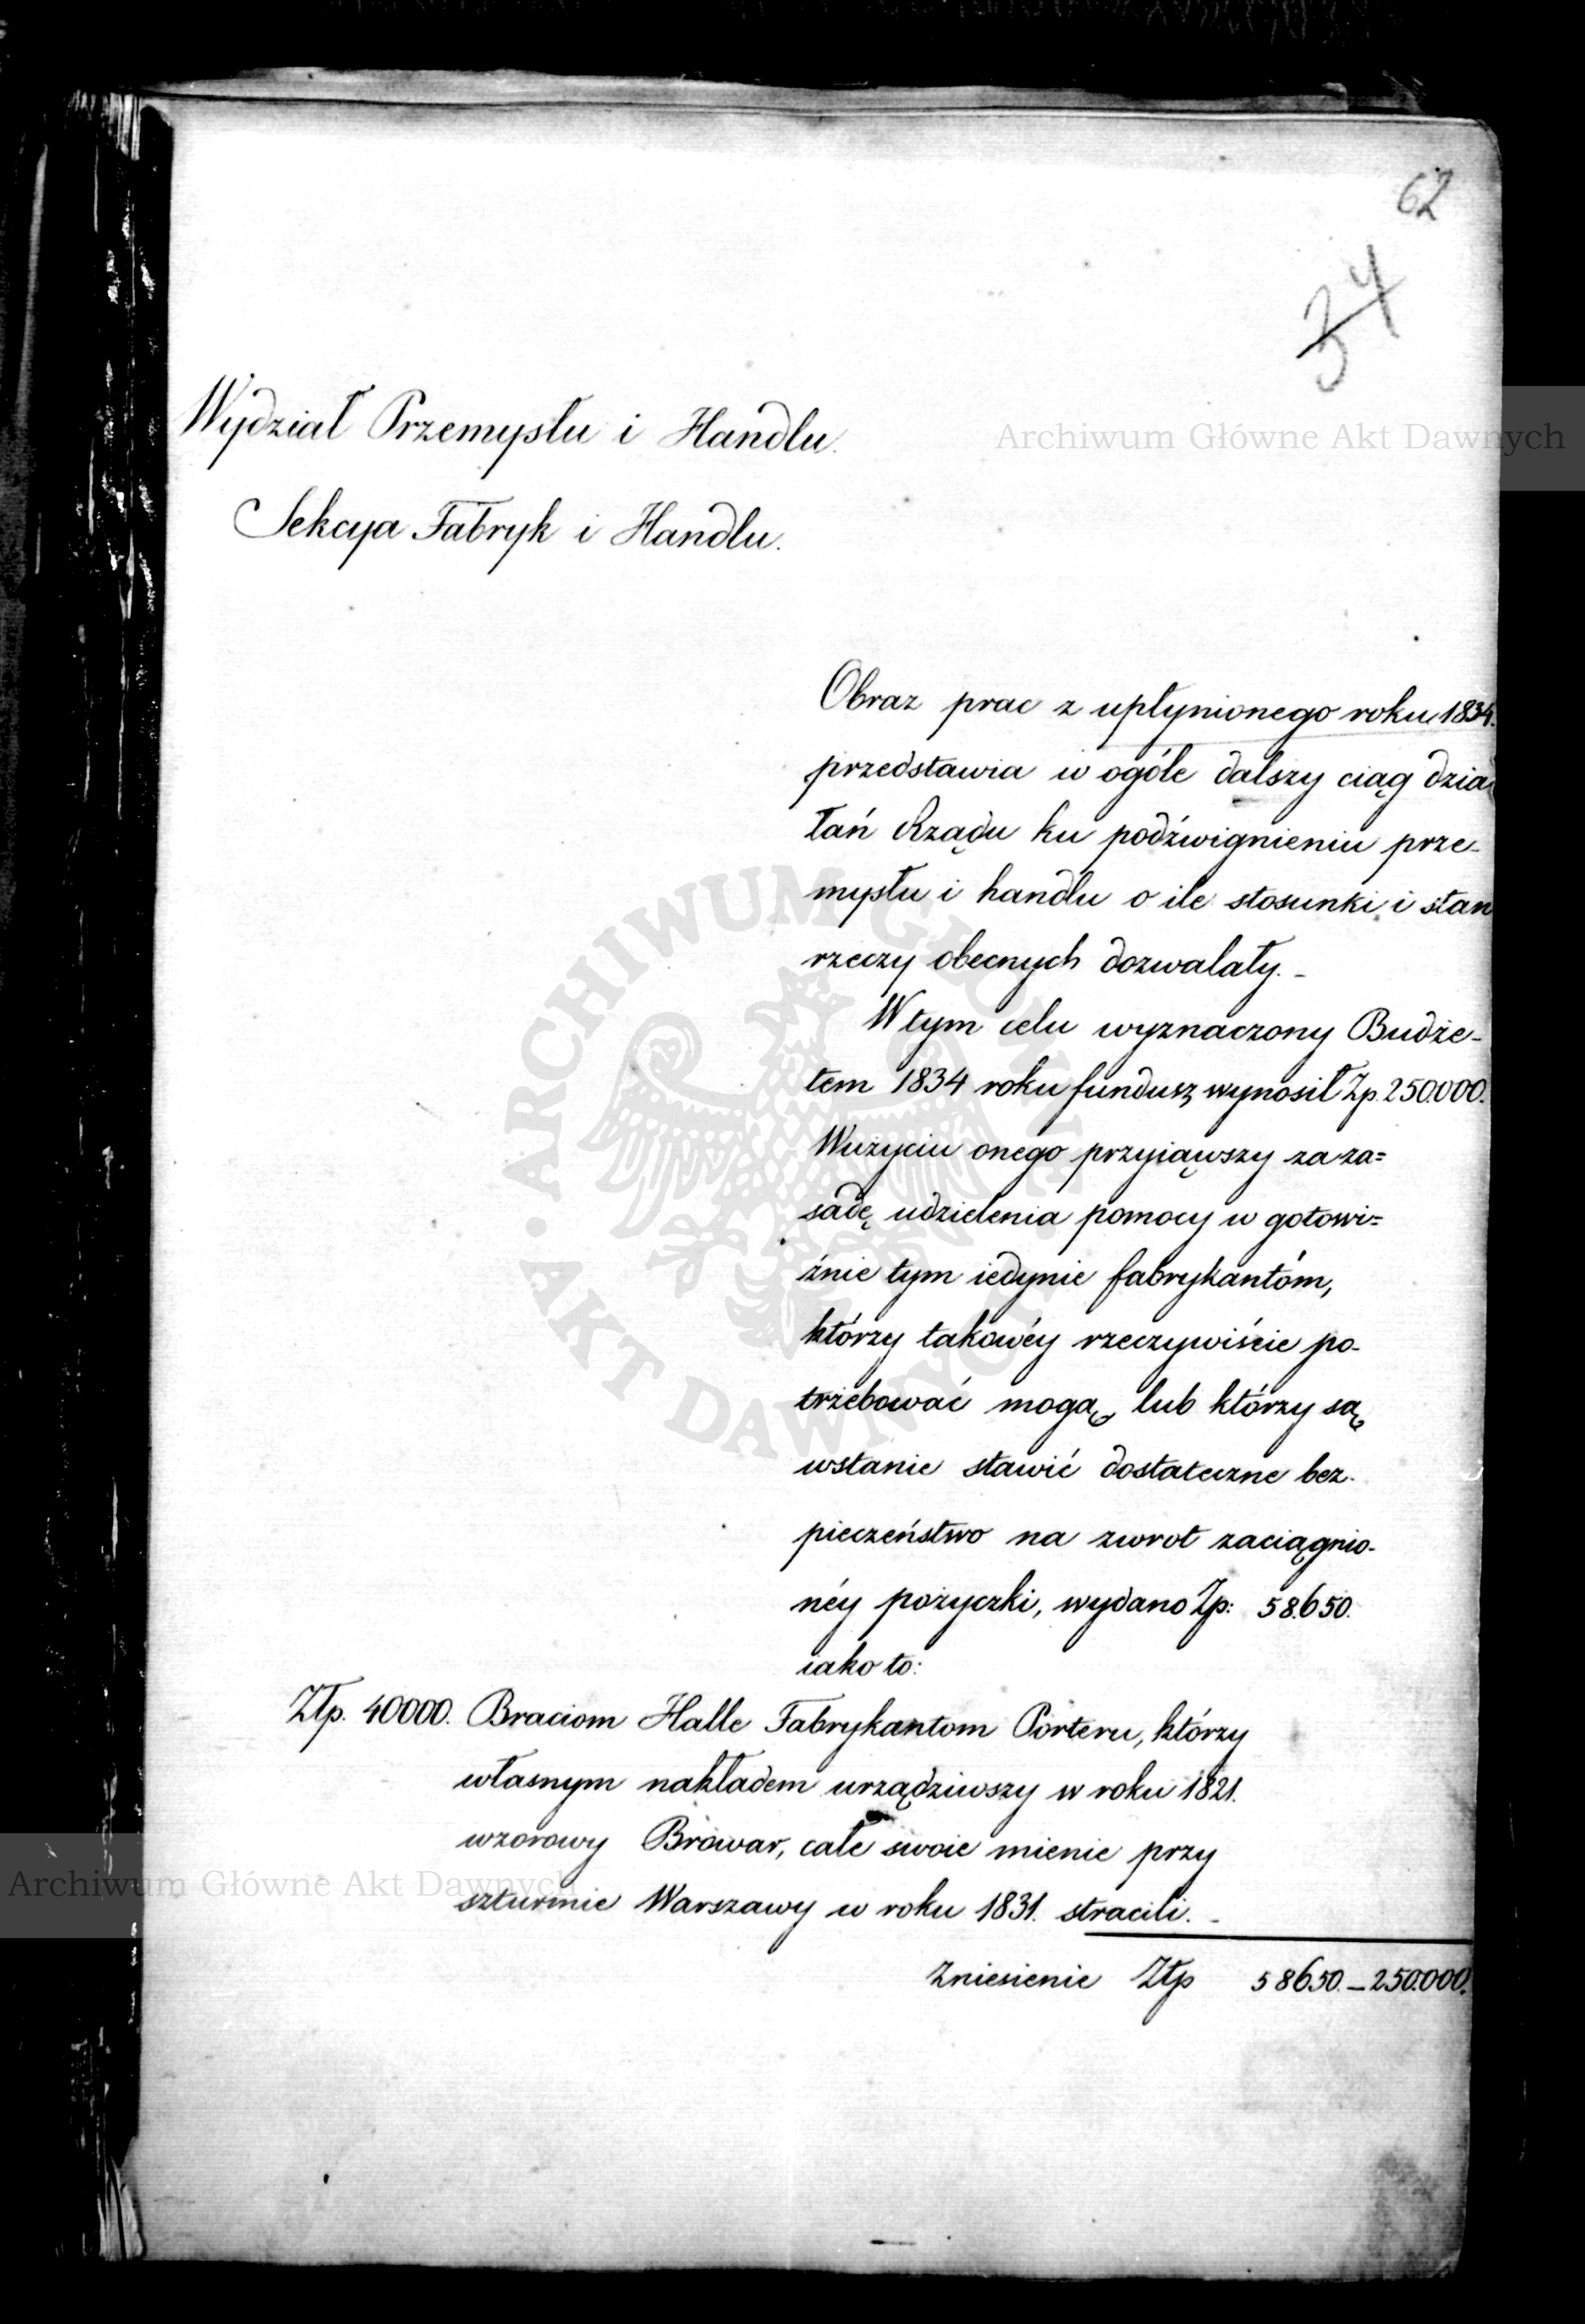 62
34
Wydział Przemysłu i Handlu.
Archiwum Główne Akt Dawnych
Sekcya Fabryk i Handlu.
Obraz prac z upłynionego roku 1834.
przedstawia w ogóle dalszy ciąg dzia
łań Rządu ku podźwignieniu prze-
mysłu i handlu o ile stosunki i stan
rzeczy obecnych dozwalały. -
W tym celu wyznaczony Budże-
tem 1834 roku fundusz wynosił Zp. 250.000.
W użyciu onego przyiąwszy za za=
sadę udzielenia pomocy w gotowi=
źnie tym iedynie fabrykantóm,
którzy takowéy rzeczywiście po-
trzebować mogą, lub którzy są
wstanie stawić dostateczne bez-
pieczeństwo na zwrot zaciągnio-
néy pożyczki, wydano Zp: 58.650.
iako to:
Złp. 40000. Braciom Halle Fabrykantom Porteru, którzy
własnym nakładem urządziwszy w roku 1821.
wzorowy Browar, całe swoie mienie przy
Archiwum Główne Akt Dawnych
szturmie Warszawy w roku 1831. stracili. -
Zniesienie Złp 58650. - 250.000.
ARCHIWUM GŁÓWNE · AKT DAWNYCH ·